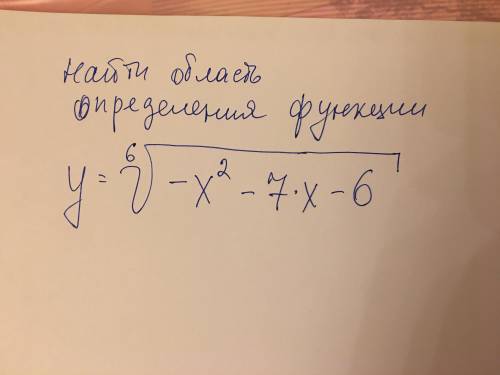 Найти область
определения функции
y = ⁶√(-x² - 7·x - 6)